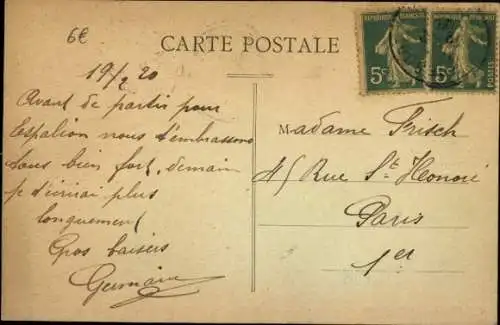 6€
CARTE POSTALE
REPUBLIQUE FRANÇAISE
5c
POSTES
REPUBLIQUE FRANÇAISE
5c
POSTES
19/2 20
Avant de partir pour
Espalion nous t'embrassons
tous bien fort, demain
je t'écrirai plus
longuement
Gros baisers
Germaine
Madame Frisch
Rue St Honoré
Paris
1er